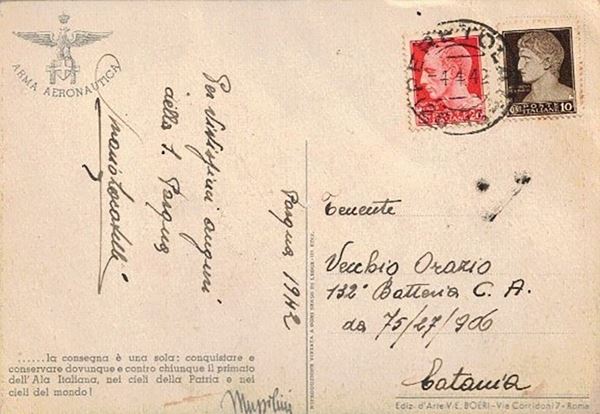 ARMA AERONAUTICA
Per Vivissimi auguri
della S. Pasqua
Pasqua 1942
4.4.42
POSTE
ITALIANE 10
Tenente
Vecchio Orazio
132ª Batteria C. A.
da 75/27/906
Catania
......la consegna è una sola: conquistare e
conservare dovunque e contro chiunque il primato
dell'Ala Italiana, nei cieli della Patria e nei
cieli del mondo!
Mussolini
Ediz. d'Arte V.E. BOERI - Via Corridoni 7 - Roma